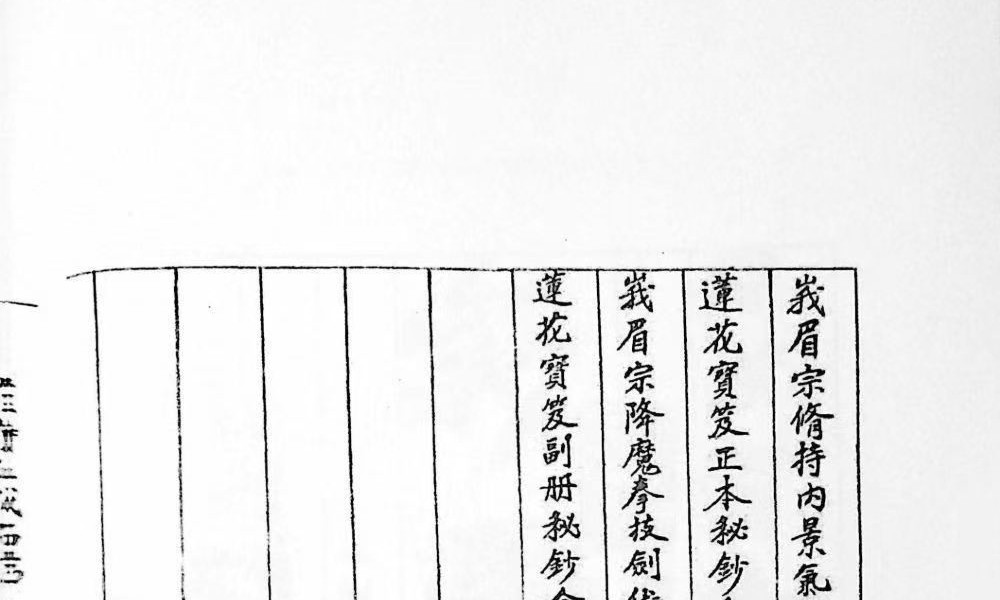 峩眉宗脩持內景氣
蓮花寶笈正本秘鈔
峩眉宗降魔拳技劍
蓮花寶笈副册秘鈔